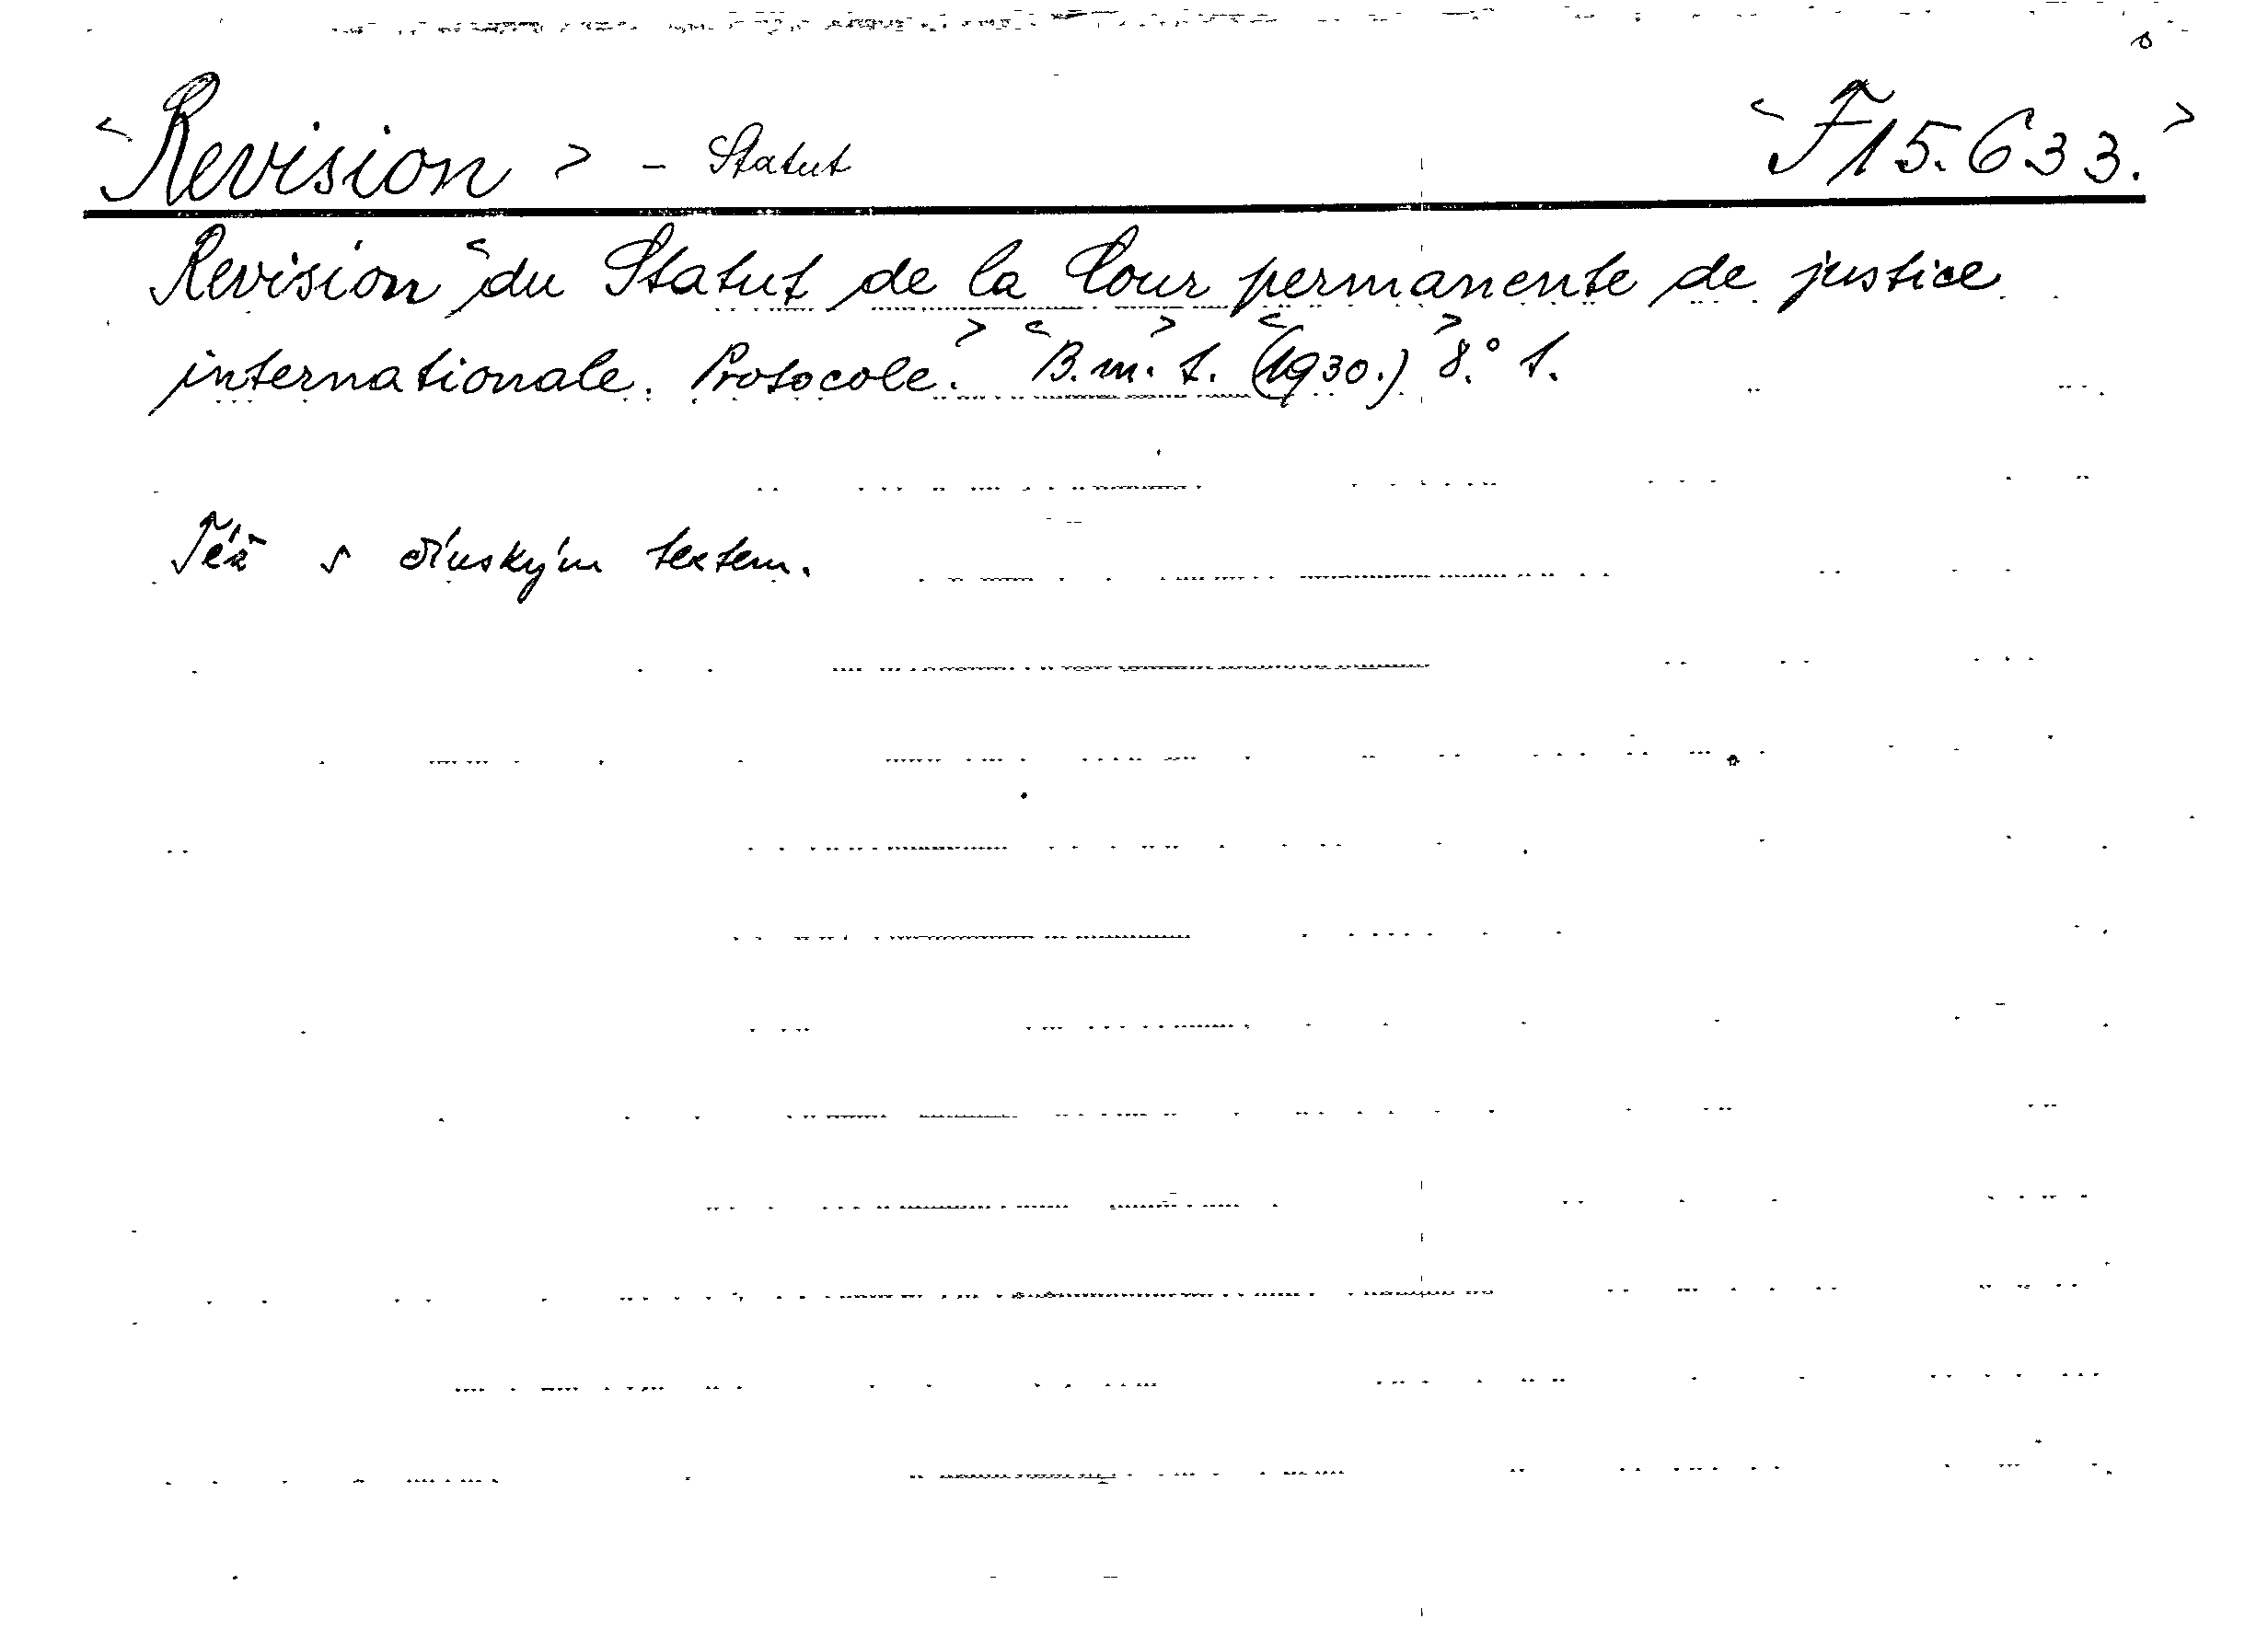 <Revision> - Statut <F15.633.>
Revision <du Statut de la Cour permanente de justice
internationale. Protocole.> <B.m.> t. <(1930.)> 8.° 1.
Též s čínským textem.